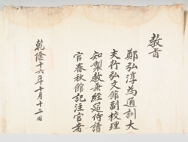 教旨
鄭弘淳爲通訓大
夫行弘文館副校理
知製教兼經筵侍讀
官春秋館記注官者
乾隆十六年十月十二日